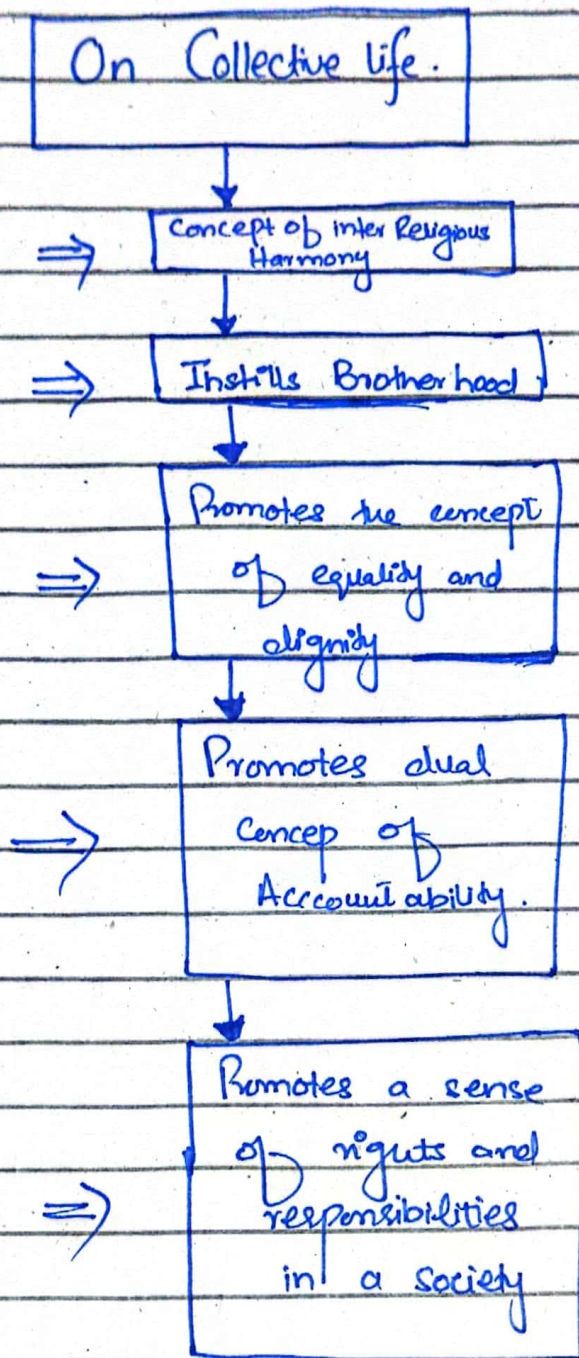 On Collective life.
Concept of inter Religious
Harmony
Instills Brotherhood
Promotes the concept
of equality and
dignity
Promotes dual
Concep of
Acccountability.
Promotes a sense
of rights and
responsibilities
in a society